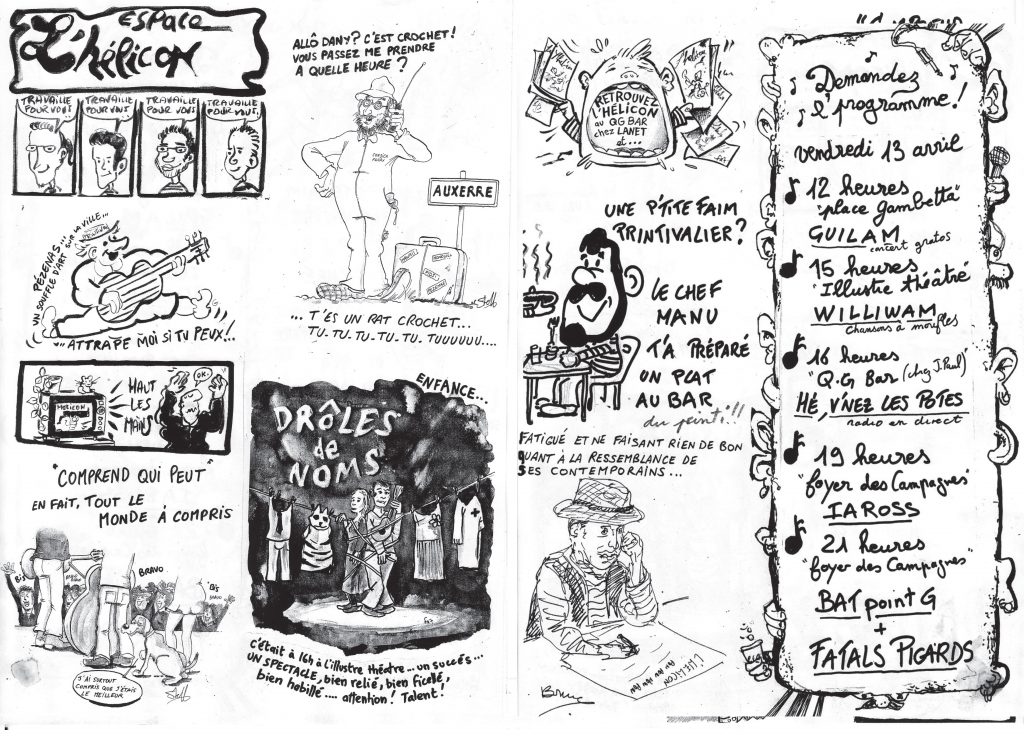 ESPACE
L'hélicon
TRAVAILLE
POUR VOUS!
TRAVAILLE
POUR VOUS
TRAVAILLE
POUR VOUS
TRAVAILLE
POUR VOUS!
PÉZENAS...
UN SOUFFLE D'ART SUR LA VILLE...
...ATTRAPE MOI SI TU PEUX!...
HAUT
LES
MAINS
OK.
"COMPREND QUI PEUT"
EN FAIT, TOUT LE
MONDE À COMPRIS
BIS
BRAVO
BIS
BRAVO
J'AI SURTOUT
COMPRIS QUE J'ÉTAIS
LE MEILLEUR
Stelb
ALLÔ DANY? C'EST CROCHET!
VOUS PASSEZ ME PRENDRE
A QUELLE HEURE?
AUXERRE
Stelb
...T'ES UN RAT CROCHET...
TU.TU.TU.TU.TU.TUUUUUU....
ENFANCE...
DRÔLES
de
NOMS
C'était à 16h à l'illustre théatre... un succés...
UN SPECTACLE, bien relié, bien ficellé,
bien habillé.... attention! Talent!
RETROUVEZ
L'HELICON
au QG BAR
chez LANET
et...
UNE P'TITE FAIM
PRINTIVALIER?
LE CHEF
MANU
T'A PRÉPARÉ
UN PLAT
AU BAR
du peint!!!
FATIGUÉ ET NE FAISANT RIEN DE BON
QUANT À LA RESSEMBLANCE DE
SES CONTEMPORAINS...
Demandez
l'programme!
vendredi 13 avril
12 heures
"place gambetta"
GUILAM
concert gratos
15 heures
"Illustre théâtre"
WILLIWAM
chansons à moufles
16 heures
"Q.G Bar (chez J.Paul)
HÉ, V'NEZ LES POTES
radio en direct
19 heures
"foyer des Campagnes"
IAROSS
21 heures
"foyer des Campagnes"
BAT point G
+
FATALS PICARDS